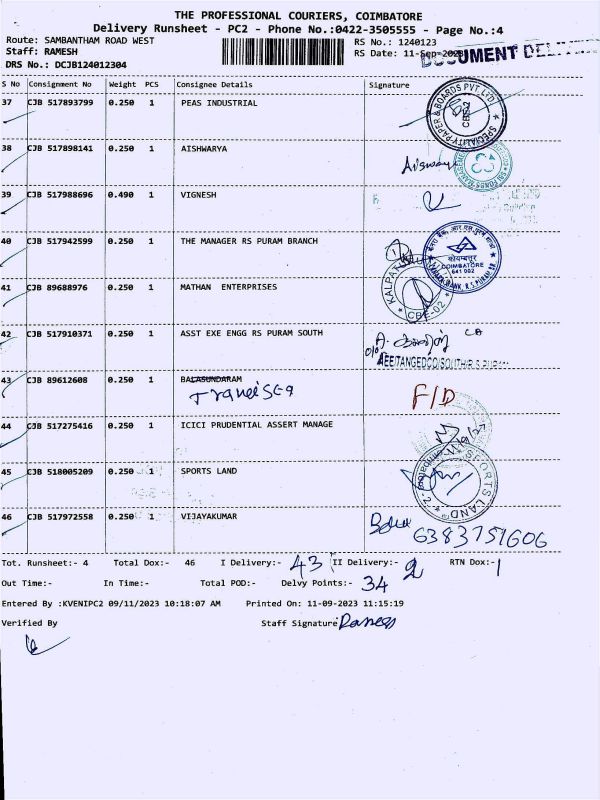 THE PROFESSIONAL COURIERS, COIMBATORE
Delivery Runsheet - PC2 - Phone No.:0422-3505555 - Page No.:4
Route: SAMBANTHAM ROAD WEST
RS No.: 1240123
Staff: RAMESH
RS Date: 11-Sep-2023
DRS No.: DCJB124012304
S No Consignment No Weight PCS Consignee Details Signature
37 CJB 517893799 0.250 1 PEAS INDUSTRIAL
SPECIALITY PAPER & BOARDS PVT LTD
CBE-2
38 CJB 517898141 0.250 1 AISHWARYA
39 CJB 517988696 0.490 1 VIGNESH
40 CJB 517942599 0.250 1 THE MANAGER RS PURAM BRANCH
कोयम्बत्तूर
COIMBATORE
641 002
41 CJB 89688976 0.250 1 MATHAN ENTERPRISES
CBE-02
42 CJB 517910371 0.250 1 ASST EXE ENGG RS PURAM SOUTH
AEE/TANGEDCO/SOUTH/R.S.PURAM
43 CJB 89612608 0.250 1 BALASUNDARAM
F/D
44 CJB 517275416 0.250 1 ICICI PRUDENTIAL ASSERT MANAGE
45 CJB 518005209 0.250 1 SPORTS LAND
SPORTS LAND
46 CJB 517972558 0.250 1 VIJAYAKUMAR
6383751606
Tot. Runsheet:- 4 Total Dox:- 46 I Delivery:- 43 II Delivery:- 2 RTN Dox:- 1
Out Time:- In Time:- Total POD:- Delvy Points:- 34
Entered By :KVENIPC2 09/11/2023 10:18:07 AM Printed On: 11-09-2023 11:15:19
Verified By Staff Signature Ramesh